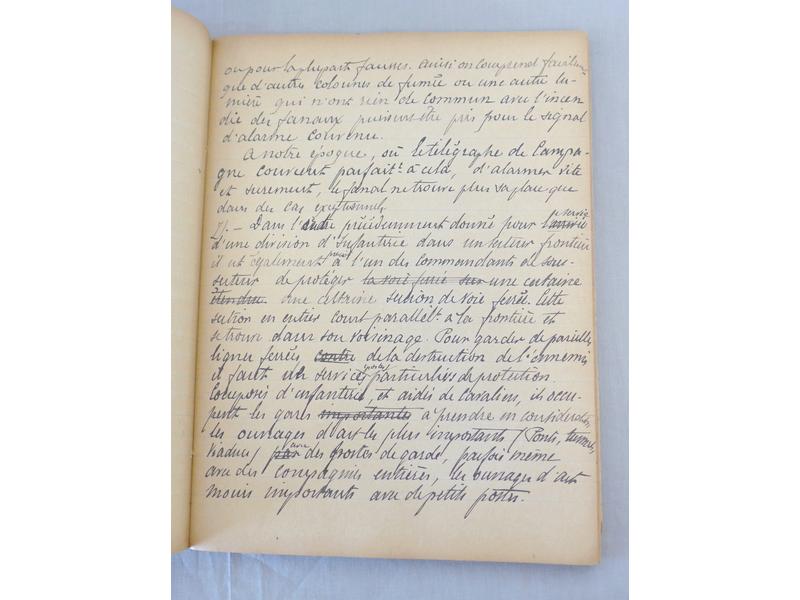 ou pour la plupart fausses. Ainsi on comprend facilem
que d'autres colonnes de fumée ou une autre lu-
mière qui n'ont rien de commun avec l'incen
die des fanaux puissent être pris pour le signal
d'alarme convenu.
A notre époque, où le télégraphe de Campa-
gne convient parfait.t à cela, d'alarmer vite
et surement, le fanal ne trouve plus sa place que
dans des cas exceptionnels
7/. - Dans l'ordre précédemment donné pour
d'une division d'Infanterie dans un secteur frontière
il est également à l'un des commandants de sous-
secteur de protéger la voie ferrée sur une certaine
étendue. Une certaine section de voie ferrée. Cette
section en entier court parallèl.t à la frontière et
se trouve dans son voisinage. Pour garder de pareilles
lignes ferrées contre de la destruction de l'ennemi
il faut un services particuliers de protection.
Composés d'infanterie, et aidés de cavaliers, ils occu-
pent les gares importantes à prendre en considération
les ouvrages d'art les plus importants (Ponts, tunnels,
viaducs) par avec des postes de garde, parfois même
avec des compagnies entières, les ouvrages d'art
moins importants avec de petits postes.